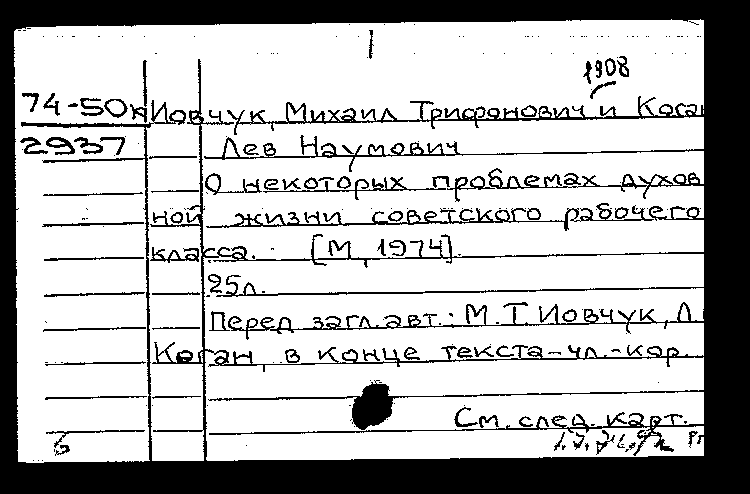 1908
74-50к Иовчук, Михаил Трифонович и Коган
2937 Лев Наумович
О некоторых проблемах духов
ной жизни советского рабочего
класса. [М, 1974].
25л.
Перед загл. авт.: М.Т. Иовчук, Л
Коган, в конце текста-чл.-кор.
См. след. карт.
6